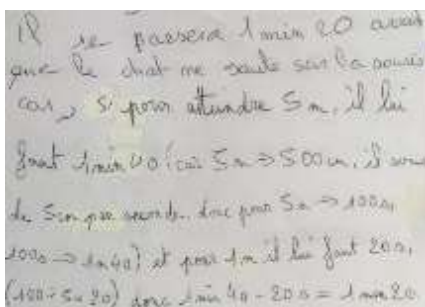 Il se passera 1 min 20 avant
que le chat ne saute sur la souris
car, si pour atteindre 5 m, il lui
faut 1 min 40 (car 5m => 500 cm, il
de 5cm par seconde, donc pour 5m => 100s,
100s -> 1m40) et pour 1m il lui faut 20s,
(100÷5=20) donc 1 min 40 - 20s = 1 min 20